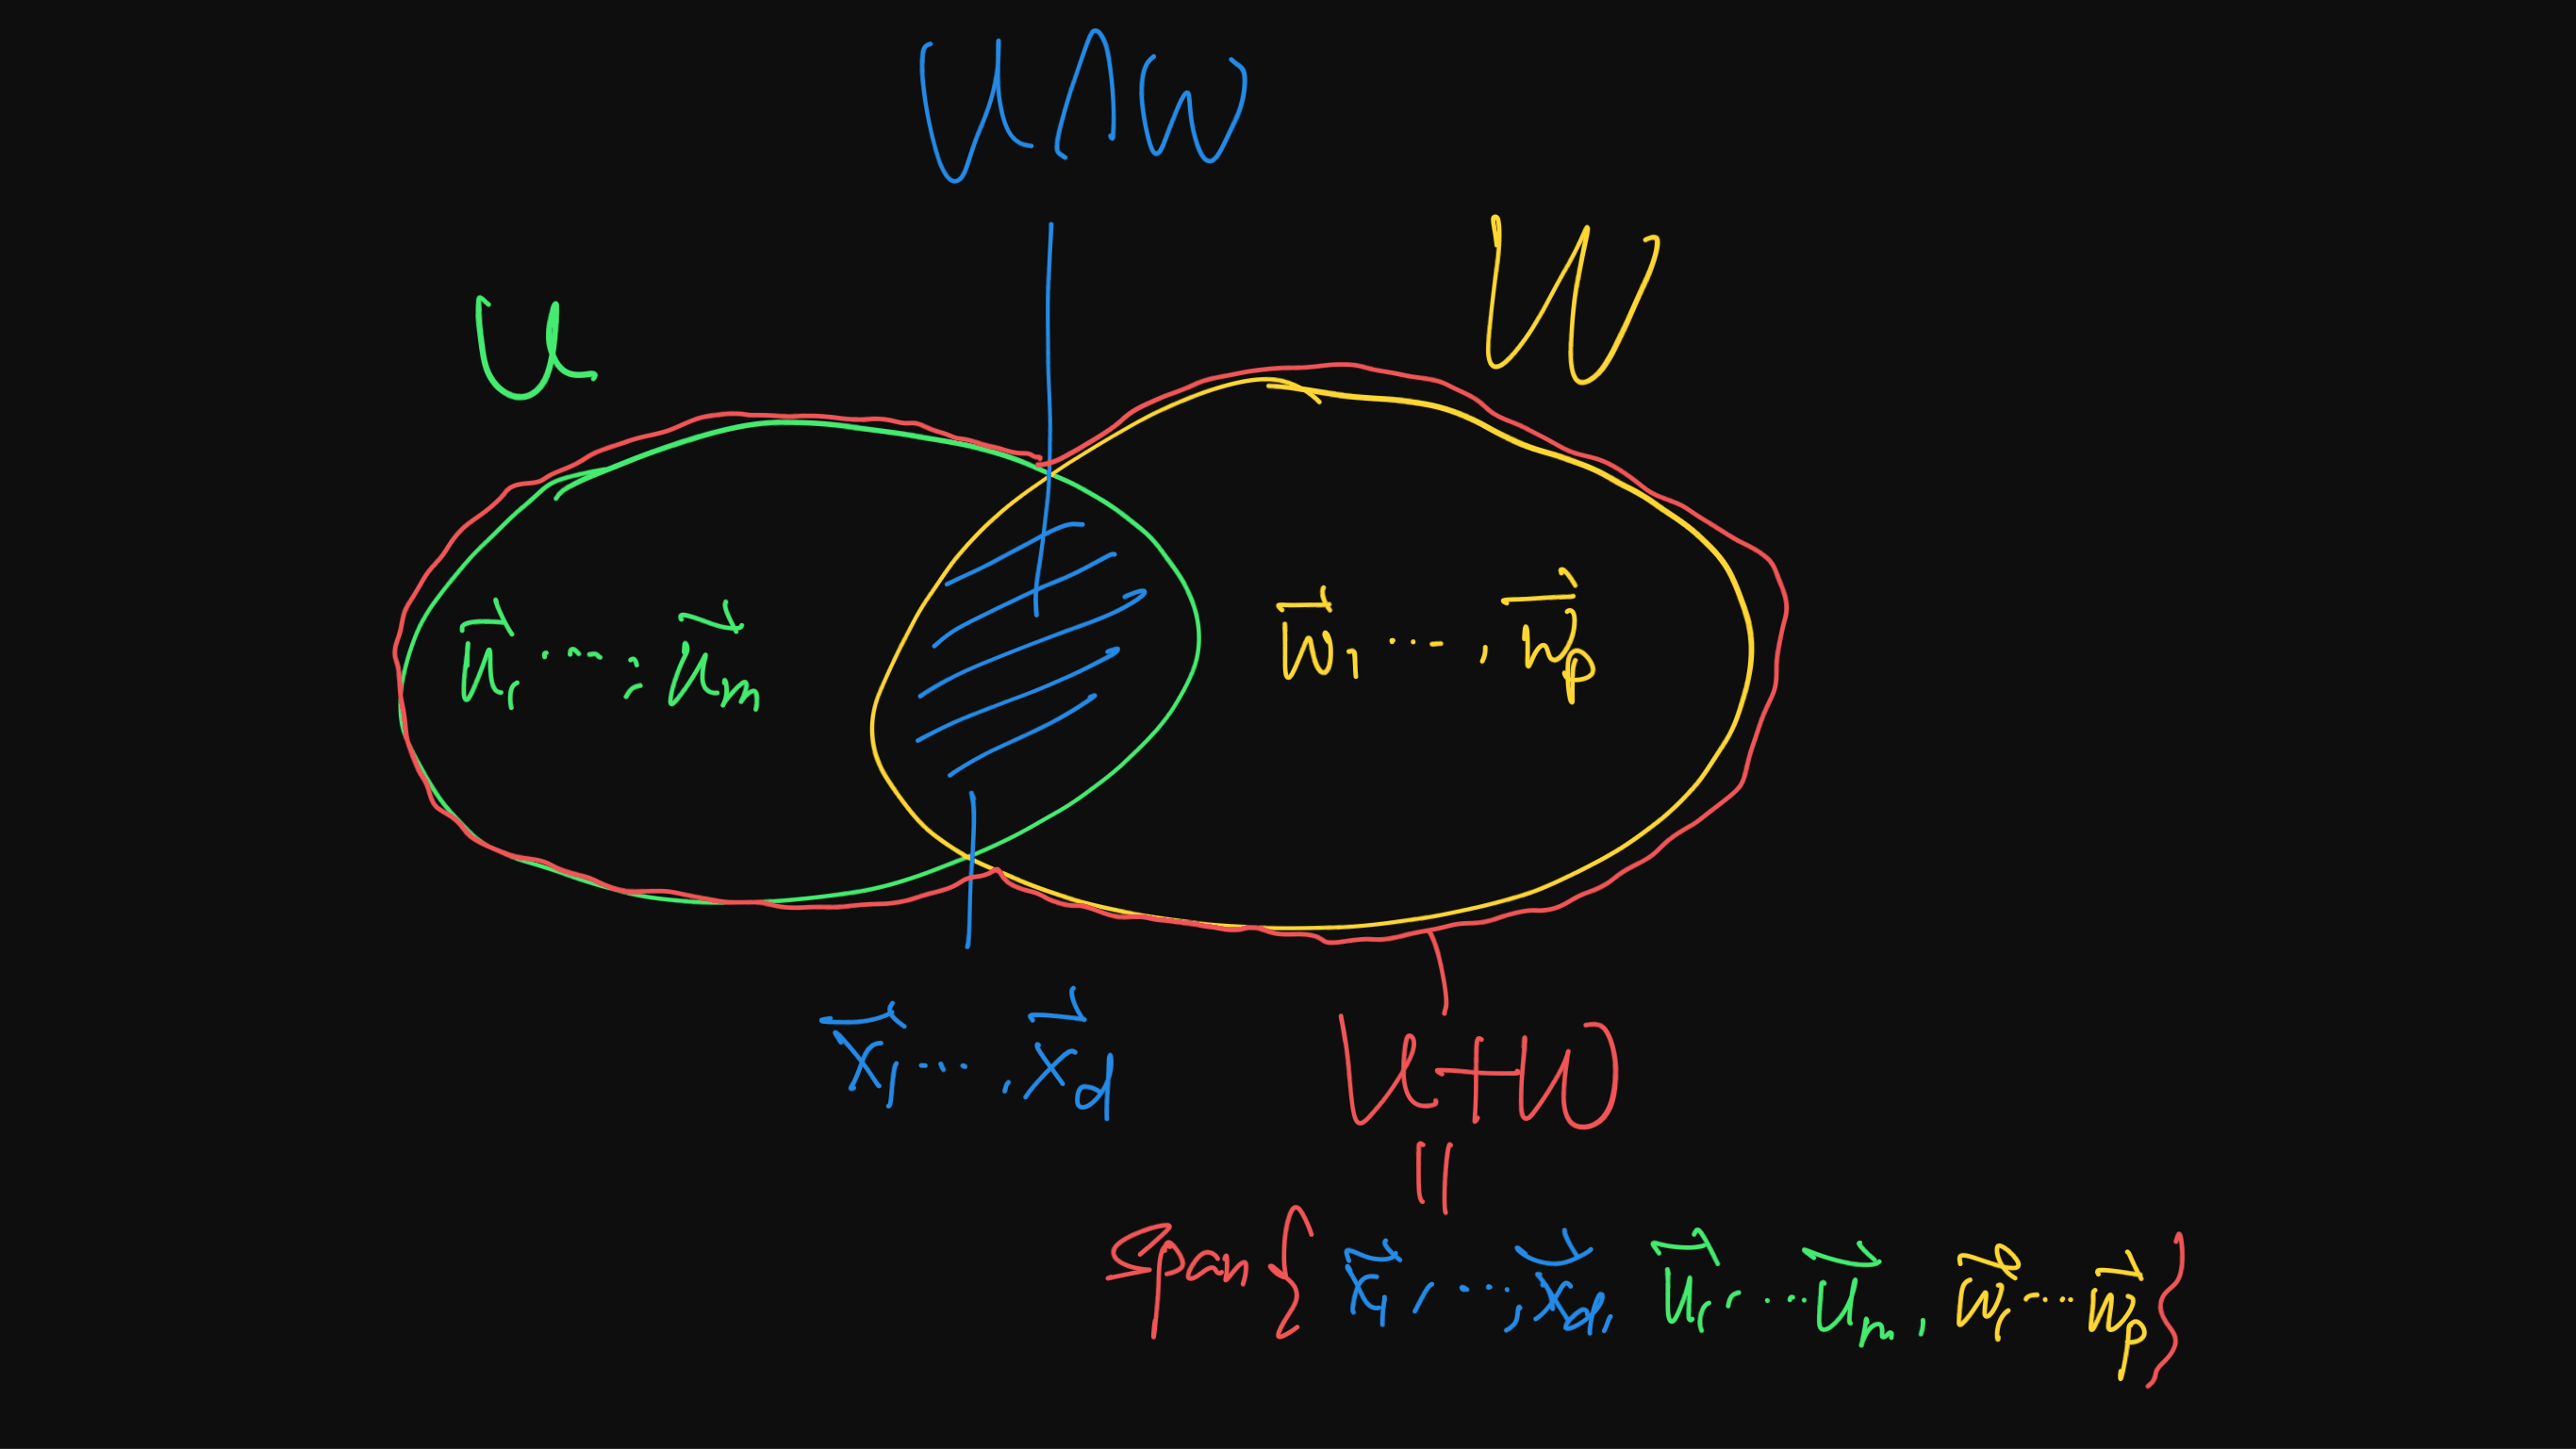 U∩W
W
U
u⃗₁ ⋯, u⃗ₘ
w⃗₁ ⋯, w⃗ₚ
x⃗₁ ⋯, x⃗d
U+W
||
Span{x⃗₁, ⋯, x⃗d, u⃗₁, ⋯ u⃗ₘ, w⃗₁ ⋯ w⃗ₚ}